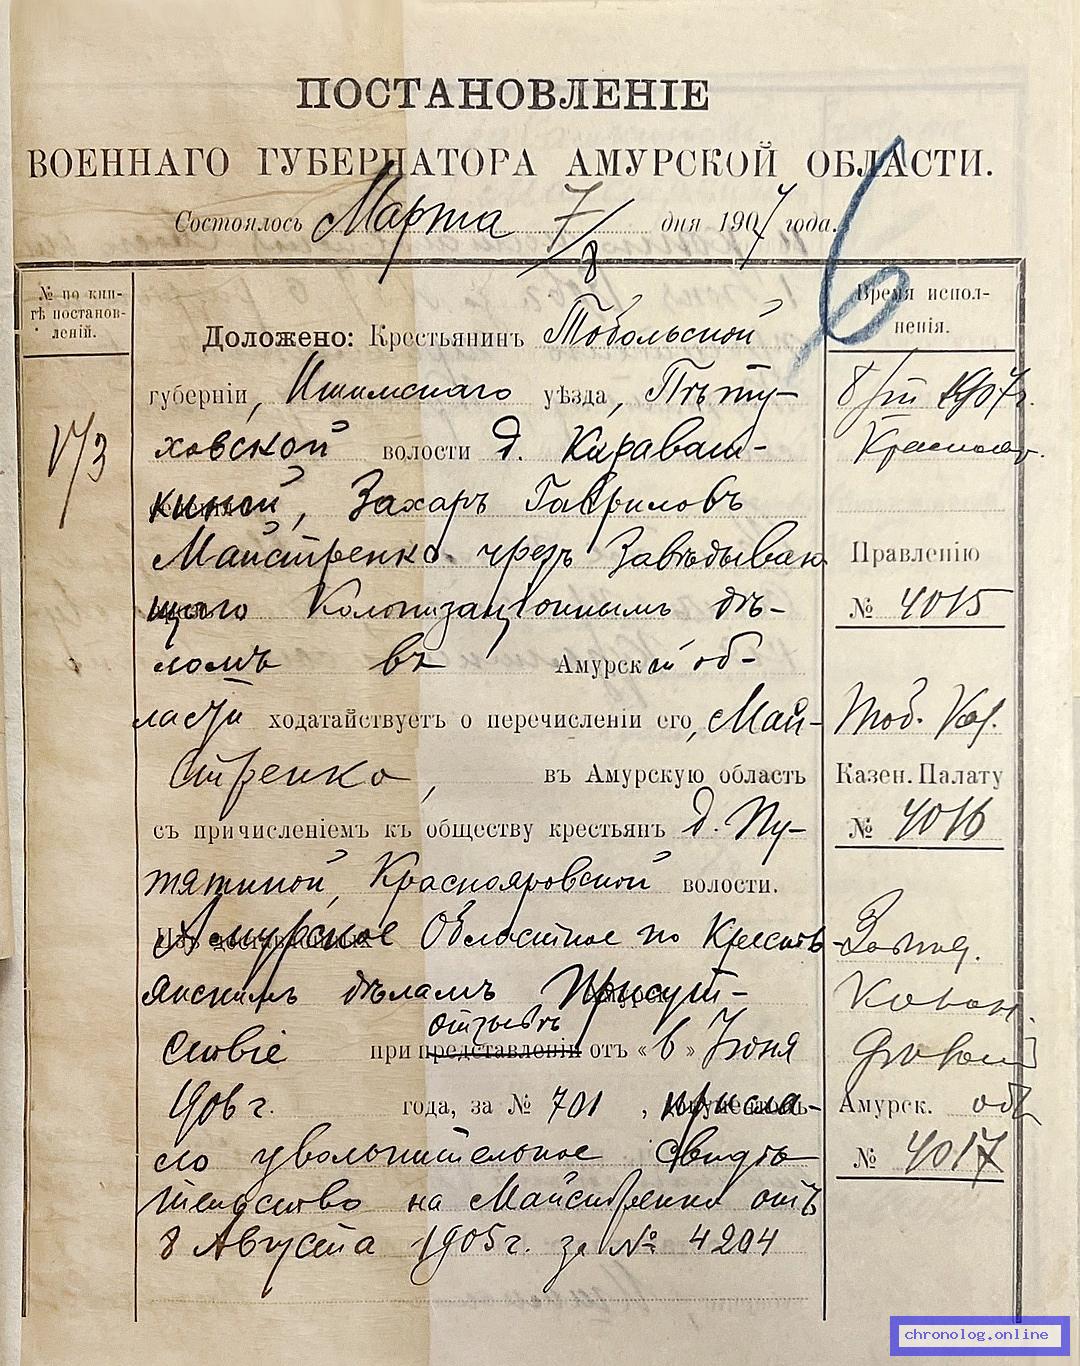 ПОСТАНОВЛЕНІЕ
ВОЕННАГО ГУБЕРНАТОРА АМУРСКОЙ ОБЛАСТИ.
Состоялось Марта 7/8 дня 1907 года.
6
№ по кни-
гѣ постанов-
леній.
173
Доложено: Крестьянинъ Тобольской
губерніи, Ишимскаго уѣзда, Пѣту-
ховской волости д. Караваш-
киной, Захаръ Гавриловъ
Майстренко чрезъ Завѣдываю
щаго Колонизаціоннымъ дѣ-
ломъ въ Амурской об-
ласти ходатайствуетъ о перечисленіи его, Май-
стренко, въ Амурскую область
съ причисленіемъ къ обществу крестьянъ д. Пу-
тятиной, Краснояровской волости.
Амурское Областное по Кресть-
янскимъ дѣламъ Присут-
ствіе при представленіи отзывѣ отъ «6» Іюня
1906 г. года, за № 701, присла-
ло увольнительное свидѣ
тельство на Майстренко отъ
8 Августа 1905 г. за № 4204
Время испол-
ненія.
8/III 1907 г.
Краснояр.
Правленію
№ 4015
Тоб. Каз.
Казен. Палату
№ 4016
Завѣд.
Колон.
Амурск. обл
№ 4017
chronolog.online